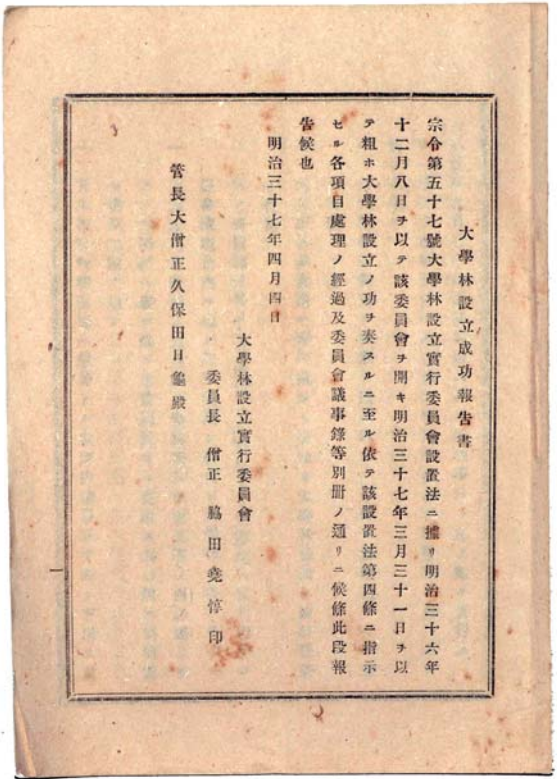 大學林設立成功報告書
宗令第五十七號大學林設立實行委員會設置法ニ據リ明治三十六年
十二月八日ヲ以テ該委員會ヲ開キ明治三十七年三月三十一日ヲ以
テ粗ホ大學林設立ノ功ヲ奏スルニ至ル依テ該設置法第四條ニ指示
セル各項目處理ノ經過及委員會議事錄等別冊ノ通リニ候條此段報
告候也
明治三十七年四月四日
大學林設立實行委員會
委員長 僧正 脇田堯惇印
管長大僧正久保田日龜殿
一